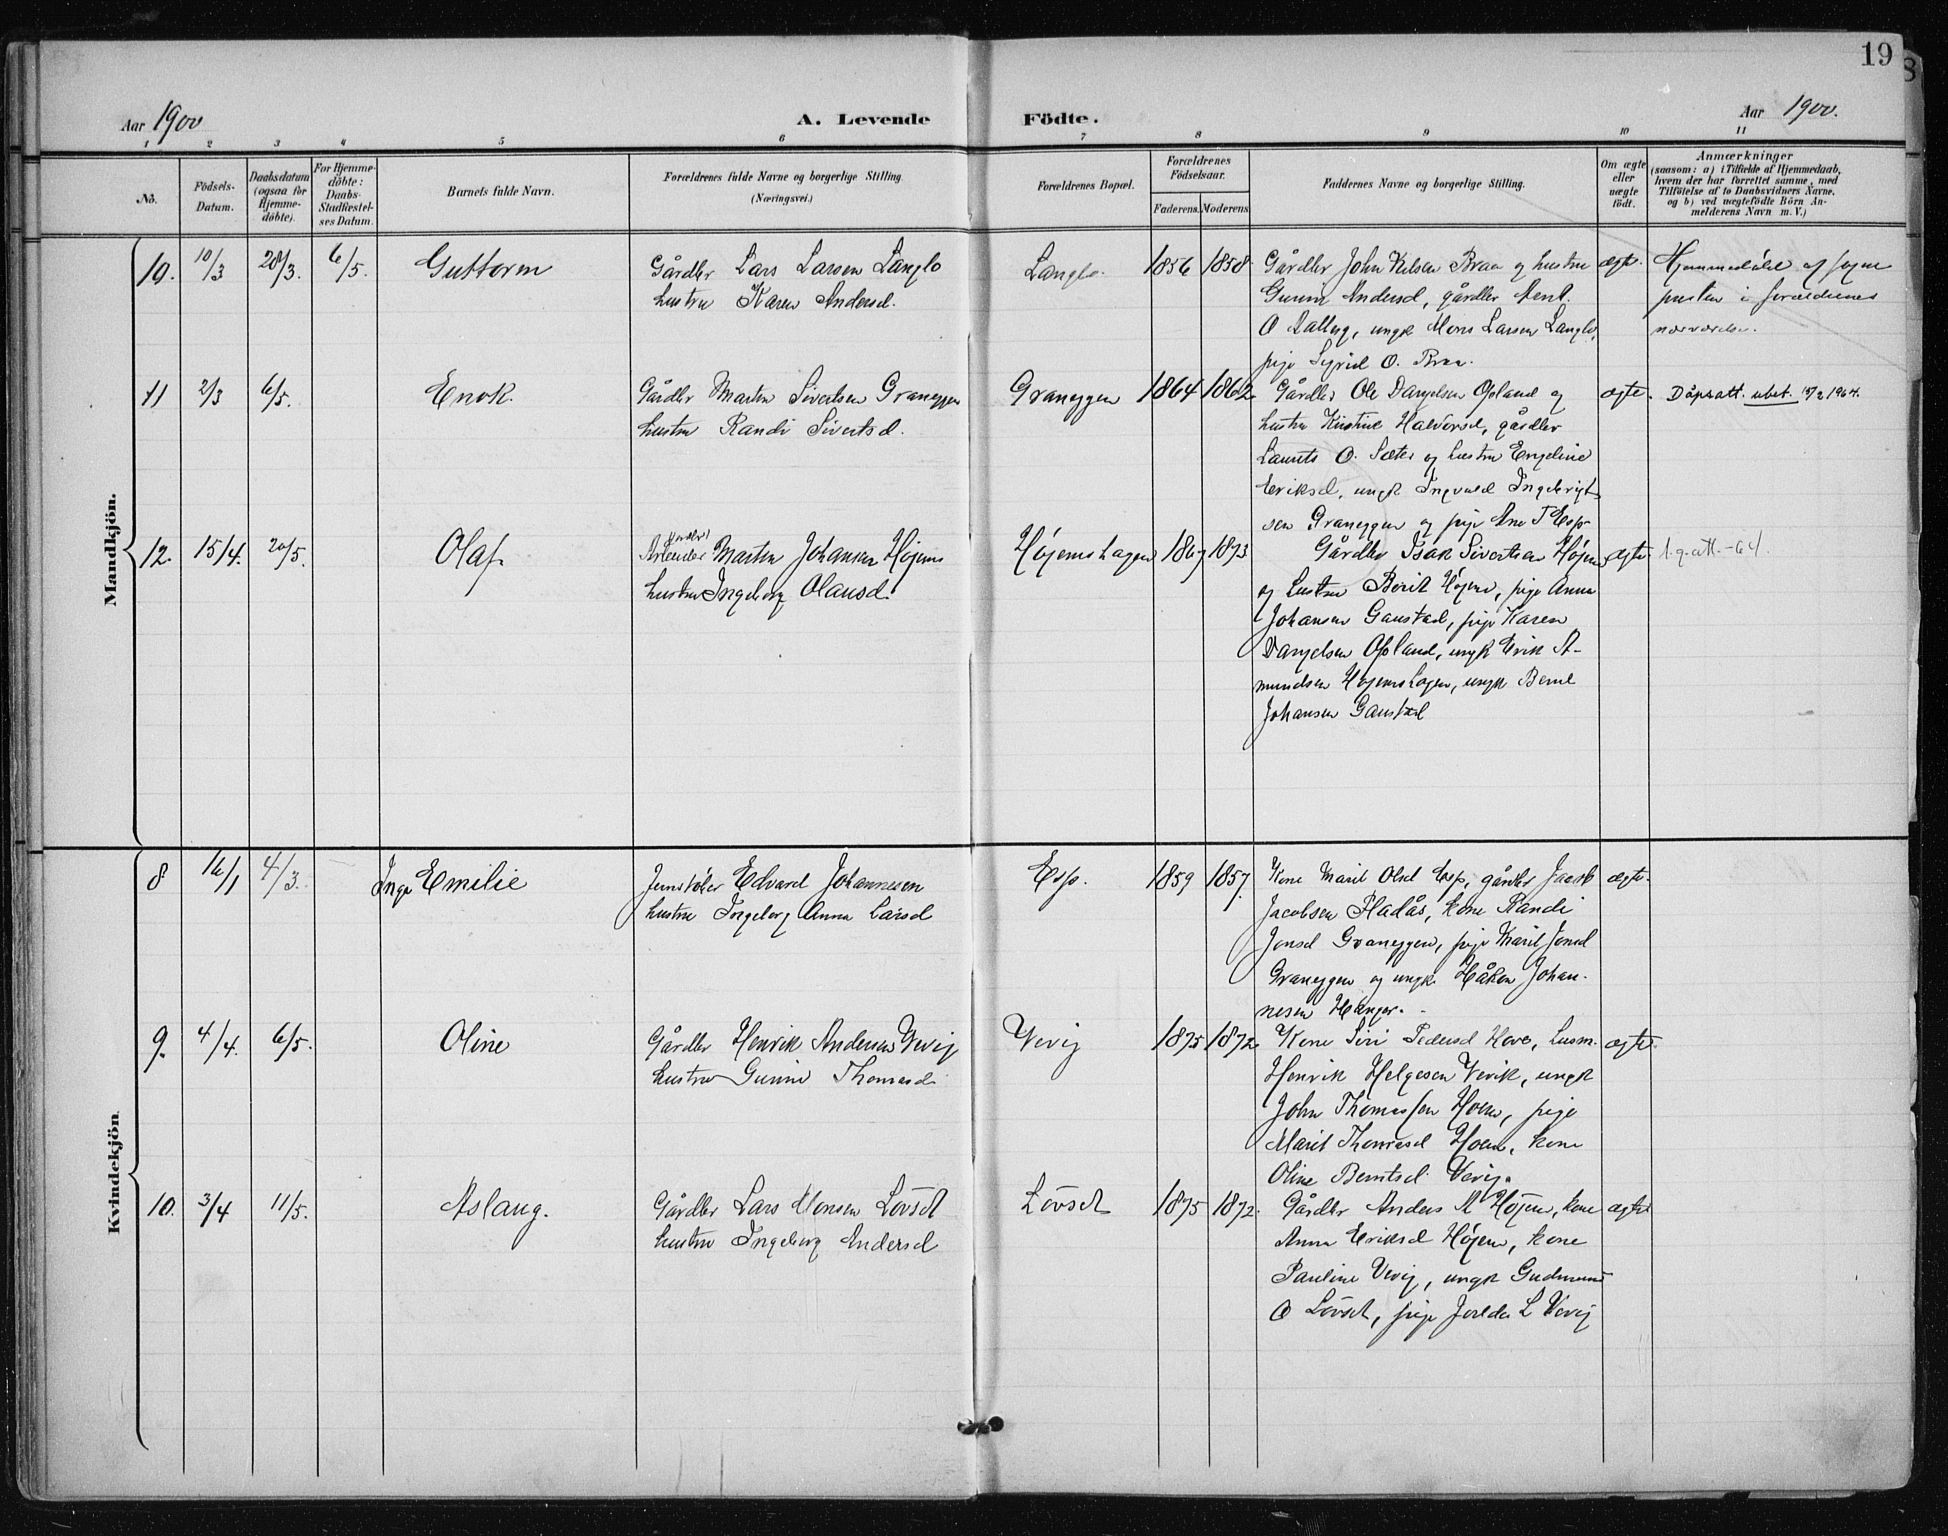 19
Aar 1900
A. Levende Födte.
Aar 1900.
1 2 3 4 5 6 7 8 9 10 11
No.
Födsels-
Datum.
Daabsdatum
(ogsaa for
Hjemme-
döbte).
For Hjemme-
döbte:
Daabs-
Stadfæstel-
ses Datum.
Barnets fulde Navn.
Forældrenes fulde Navne og borgerlige Stilling.
(Næringsvei.)
Forældrenes Bopæl.
Forældrenes
Födselsaar.
Faderens. Moderens.
Faddernes Navne og borgerlige Stilling.
Om ægte
eller
uægte
födt.
Anmærkninger
(saasom: a) i Tilfælde af Hjemmedaab,
hvem der har forrettet samme, med
Tilföielse af to Daabsvidners Navne,
og b) ved uægtefödte Börn An-
melderens Navn m. V.)
Mandkjön.
10. 10/3 28/3. 6/5. Guttorm
Gårdbr Lars Larsen Langlo
hustru Karen Andersd.
Langlo. 1856 1858
Gårdbr John Nilsen Braa og hustru
Gunni Andersd, gårdbr Arnt.
O Aalberg, ungk Mons Larsen Langlo,
pige Sigrid O. Braa.
ægte.
Hjemmedøbt af sogne
presten i forældrenes
nærværelse.
11 2/3 6/5. Enok.
Gårdbr Martin Sivertsen Graneggen
hustru Randi Sivertsd.
Graneggen 1864 1862
Gårdbr Ole Danielsen Opland og
hustru Kristine Halvorsd, gårdbr
Laurits O. Sæter og hustru Engeline
Eriksd, ungk Ingvald Ingebrigt-
sen Graneggen og pige Ane T Esp
ægte.
Dåpsatt. ubet. 15/2 1964.
12. 15/4. 20/5. Olaf.
Arbeider Martin Johansen Højem
hustru Ingeborg Olausd.
Højemshagen 1867 1873
Gårdbr Isak Sivertsen Højem
og hustru Berit Højem, pige Anna
Johansen Gaustad, pige Karen
Danielsen Opland, ungk Erik A-
mundsen Højemshagen, ungk Bernt
Johansen Gaustad
ægte.
1.g. att. -64.
Kvindekjön
8 16/1 4/3. Inga Emilie
Edvard Johannesen
hustru Ingeborg Anna Larsd
Esp. 1859 1857.
Kone Marit Olsd Esp, gårdbr Jacob
Jacobsen Fladås, kone Randi
Jonsd Graneggen, pige Marit Jonsd
Graneggen og ungk. Håkon Johan-
nesen Hanger.
ægte.
9. 4/4. 6/5. Oline
Gårdbr Henrik Andersen Vevig
hustru Gunni Thomasd.
Vevig 1875 1872
Kone Siri Pedersd Hove, husm.
Henrik Helgesen Vevik, ungk
John Thomassen Hoem, pige
Marit Thomasd Hoem, kone
Oline Berntsd. Vevig.
ægte.
10. 3/4 11/5. Aslaug.
Gårdbr Lars Monsen Lövset
hustru Ingeborg Andersd
Lövset 1875 1872.
Gårdbr Anders M Højem, kone
Anna Eriksd Højem, kone
Pauline Vevig, ungk Gudmund
O Lövset, pige Jorlda L Vevig
ægte